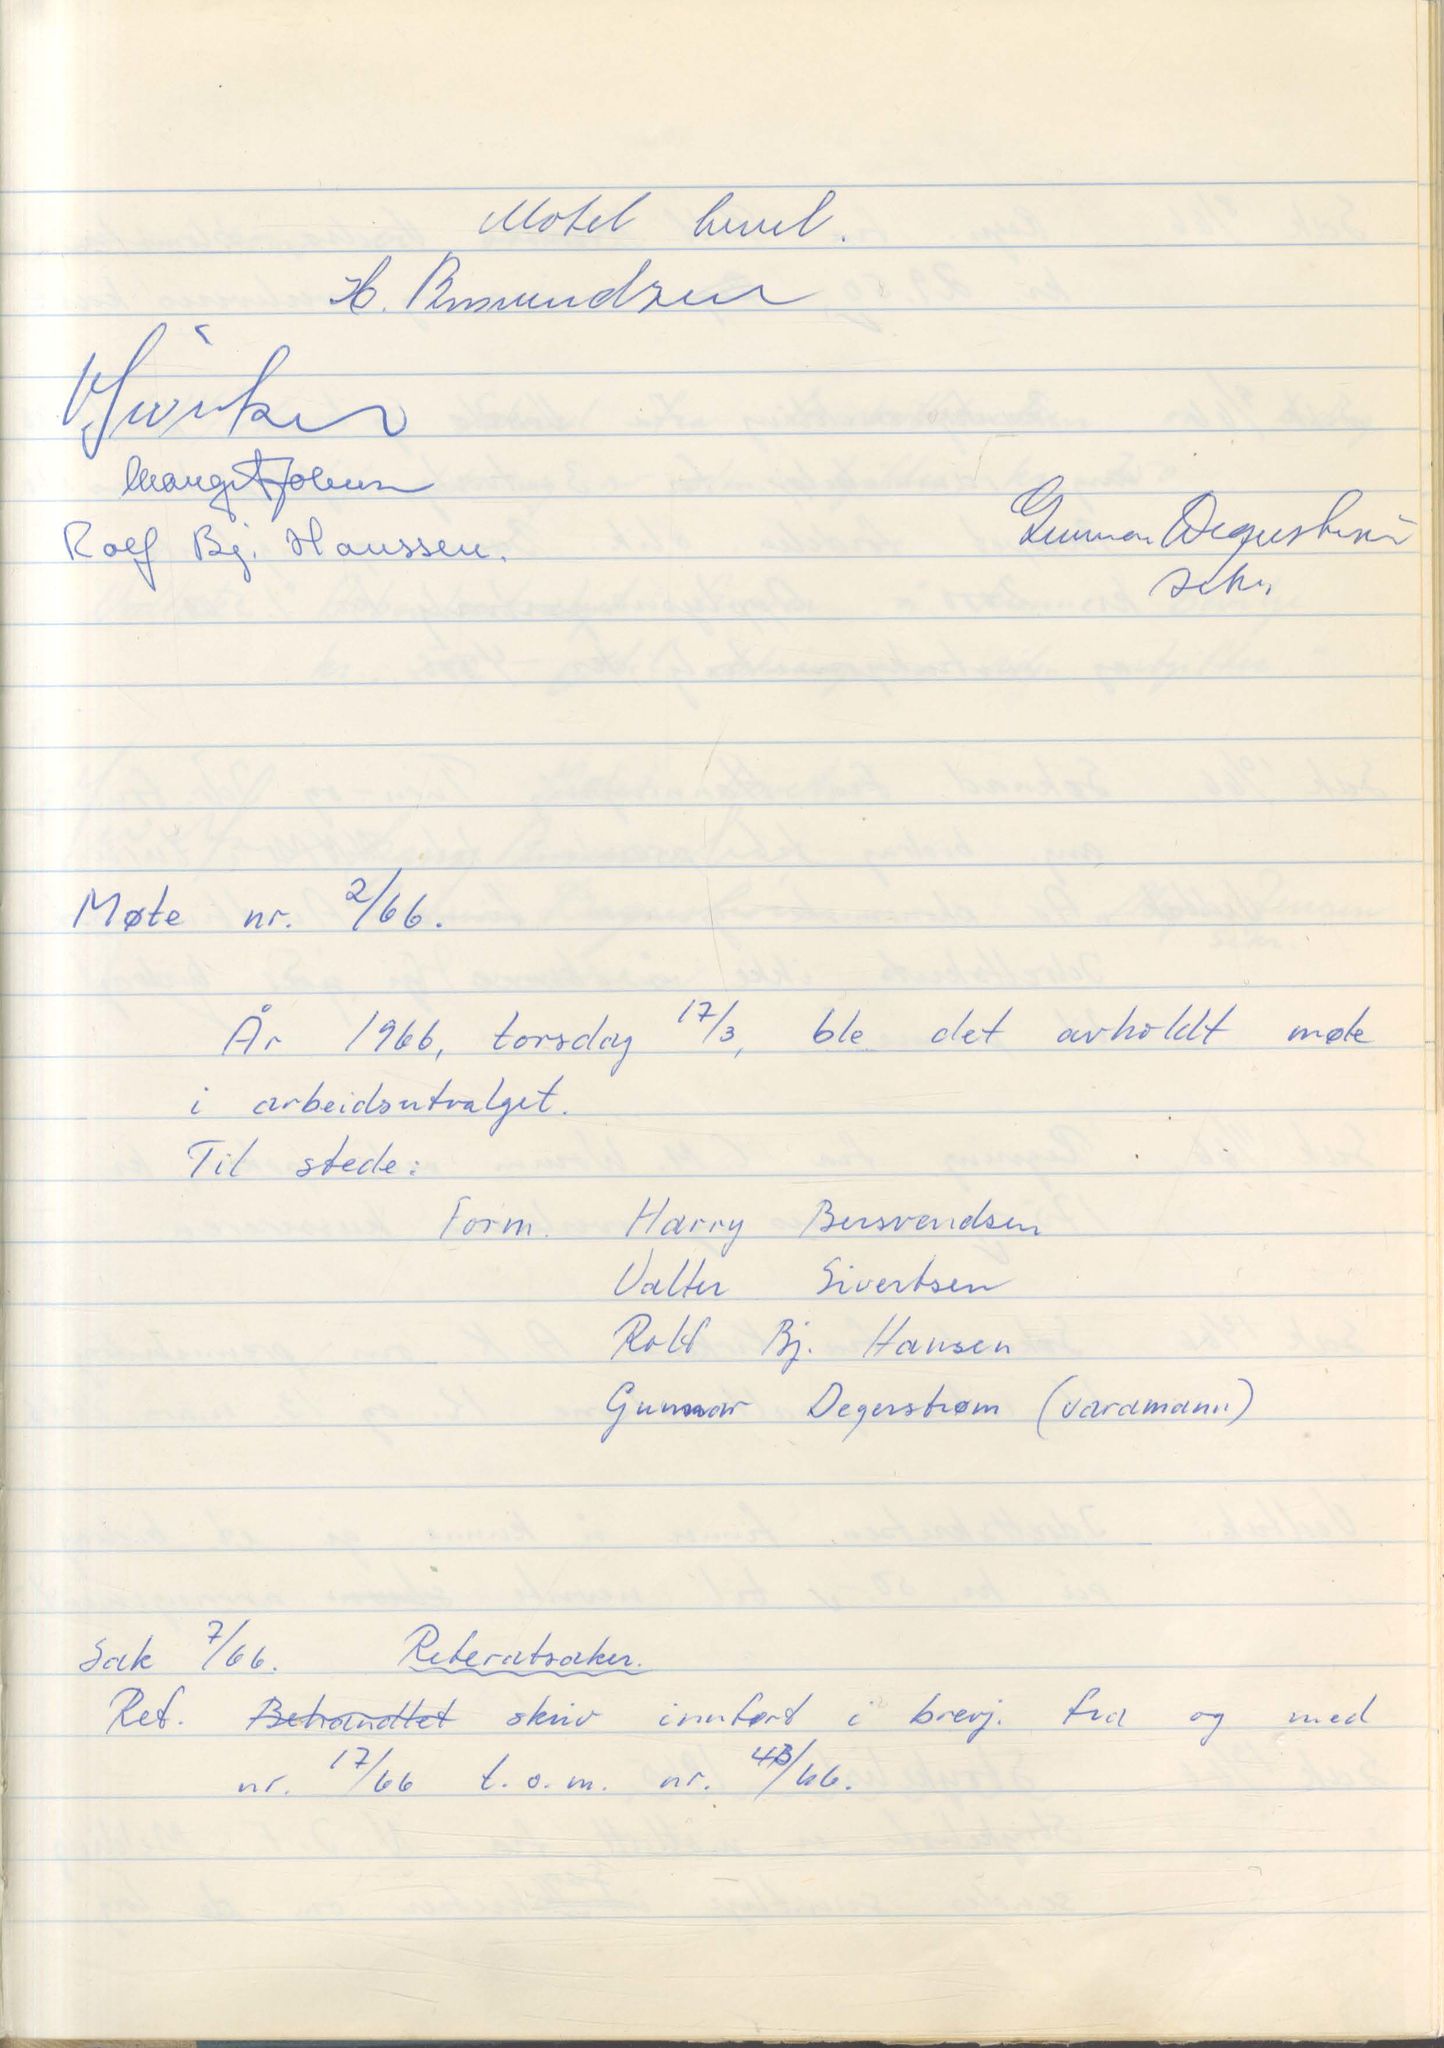 Møtet hevet.
H. Bersvendsen
Margit Johnsen
Rolf Bj. Hanssen.
Gunnar Degerstrøm
sekr.
Møte nr. 2/66.
År 1966, torsdag 17/3, ble det avholdt møte
i arbeidsutvalget.
Til stede:
Form. Harry Bersvendsen
Valter Sivertsen
Rolf Bj. Hansen
Gunnar Degerstrøm (varamann)
Sak 7/66. Referatsaker.
Ref. Behandlet skriv innført i brevj. fra og med
nr. 17/66 t.o.m. nr. 43/66.